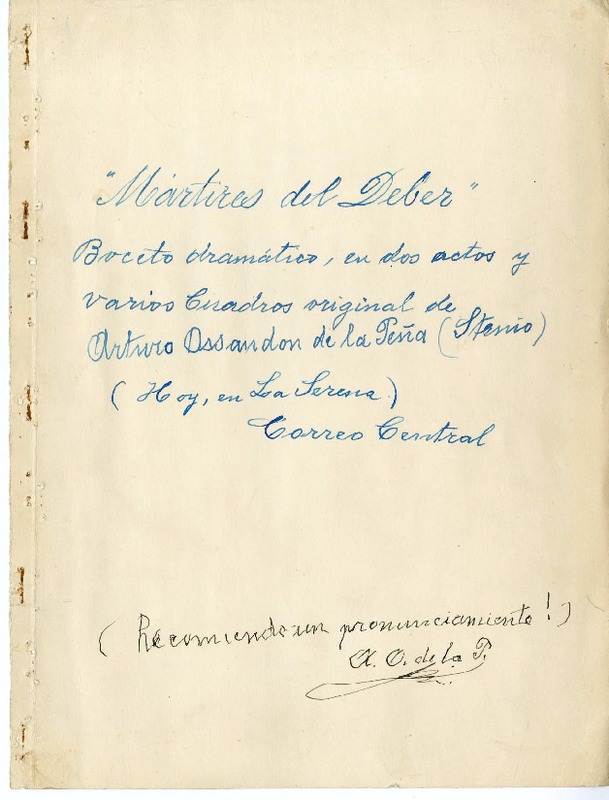 "Mártires del Deber"
Boceto dramático, en dos actos y
varios Cuadros original de
Arturo Ossandon de la Peña (Stenio)
(Hoy, en La Serena)
Correo Central
(Recomiendo un pronunciamiento!)
A. O. de la P.